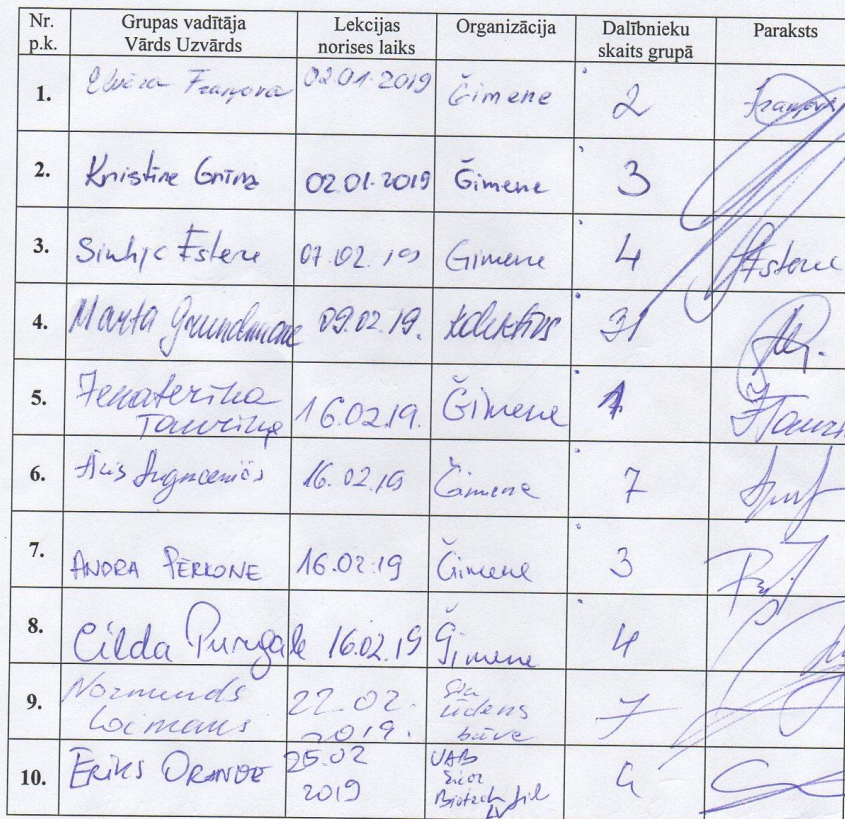 Nr. p.k. Grupas vadītāja Vārds Uzvārds Lekcijas norises laiks Organizācija Dalībnieku skaits grupā Paraksts
1. 02.01.2019 Ģimene 2
2. Kristine 02.01.2019 Ģimene 3
3. Estere 07.02.19 Gimene 4 Estere
4. Marta Grundmane 09.02.19. kolektīvs 31
5. Jekaterina 16.02.19. Ģimene
6. 16.02.19 Ģimene 7
7. ANDRA PĒRKONE 16.02.19 Ģimene 3
8. Cilda 16.02.19 Ģimene 4
9. Normunds 22.02. 2019. Sia ūdens būve 7
10. ĒRIKS 25.02 2019 UAB Sicor Biotech fil LV 4